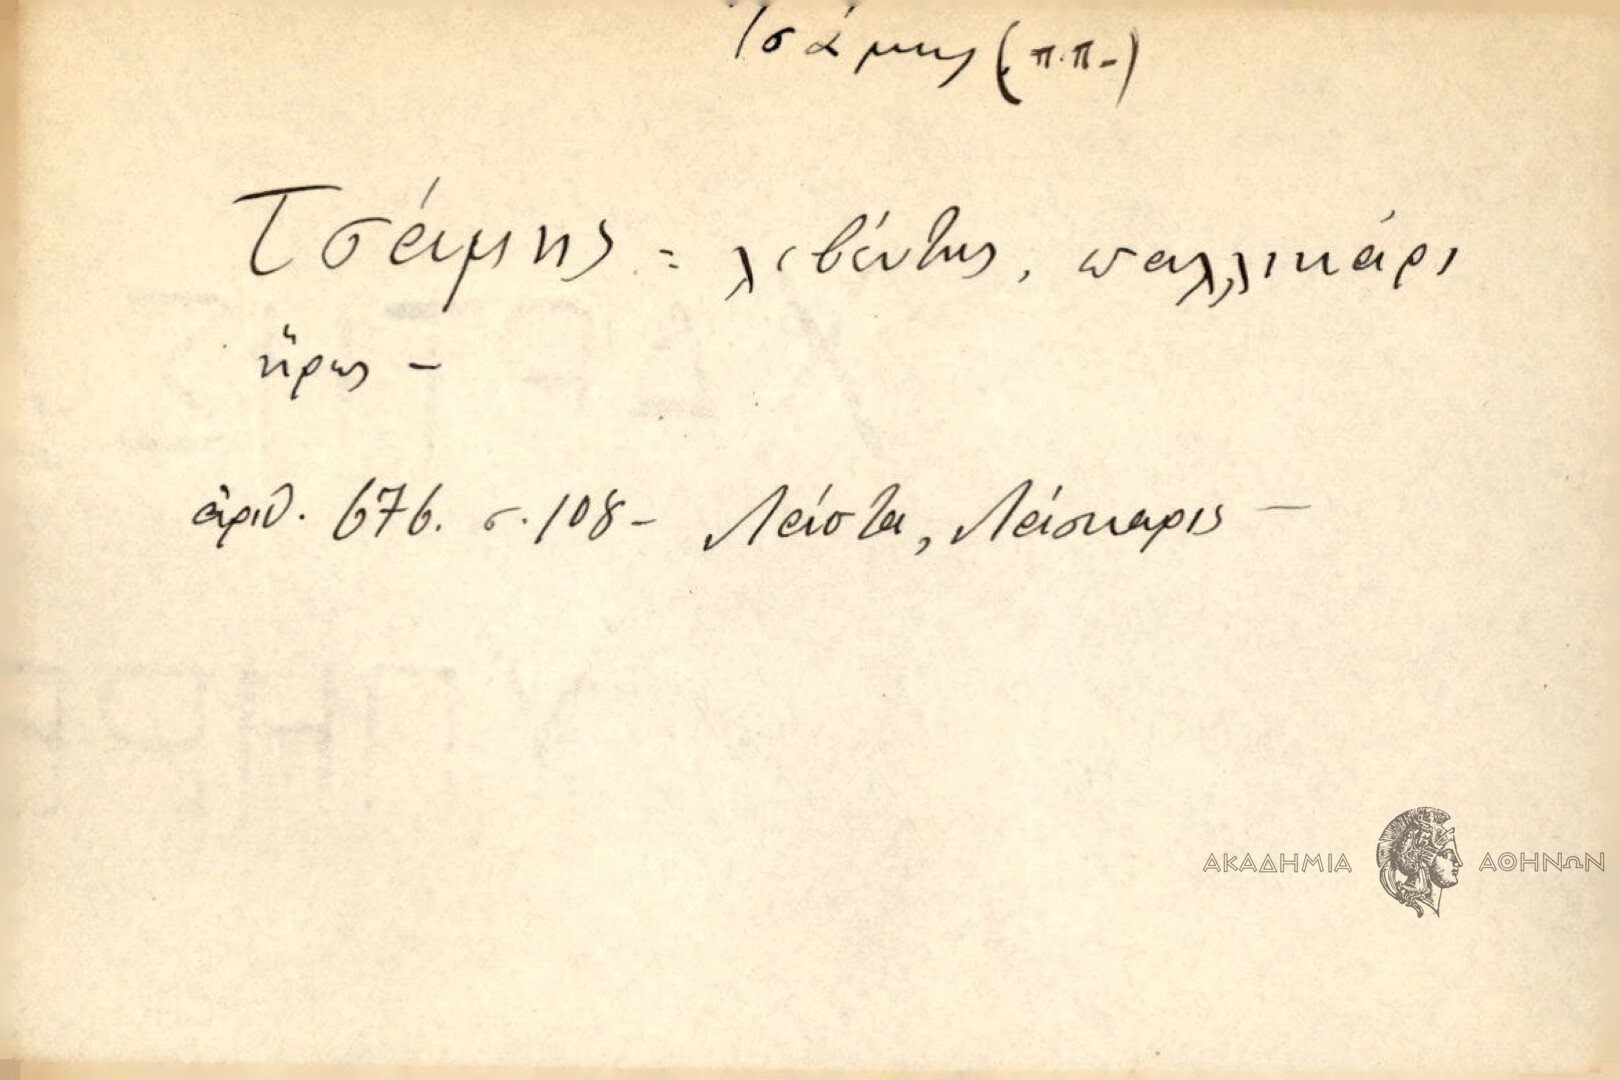 Τσάμης (π.π-)
Τσάμης = λεβέντης, παλλικάρι
ἥρως -
ἀριθ. 676. σ. 108 - Λάστα, Λάσκαρις -
ΑΚΑΔΗΜΙΑ ΑΘΗΝΩΝ